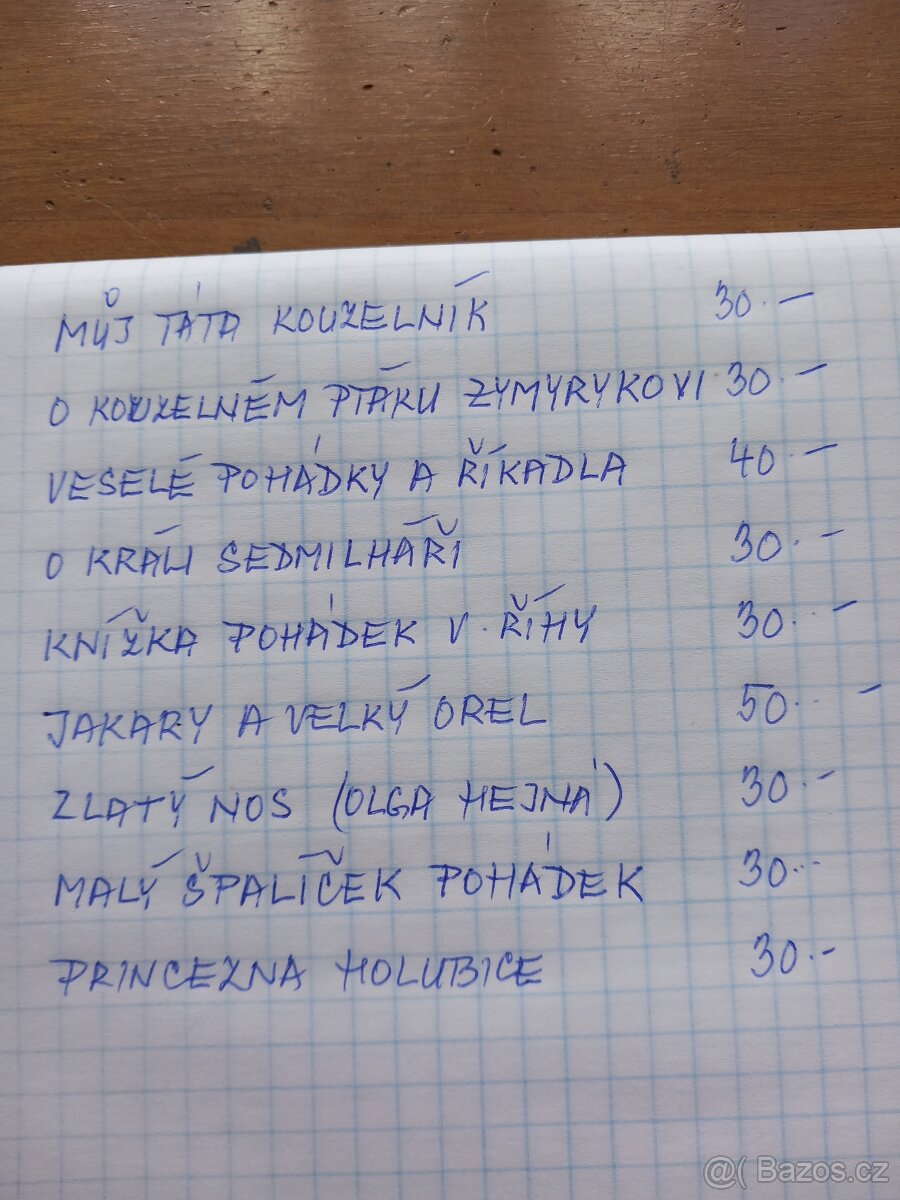 MŮJ TÁTA KOUZELNÍK 30.-
O KOUZELNÉM PTÁKU ZYMYRYKOVI 30.-
VESELÉ POHÁDKY A ŘÍKADLA 40.-
O KRÁLI SEDMILHÁŘI 30.-
KNÍŽKA POHÁDEK V. ŘÍHY 30.-
JAKARY A VELKÝ OREL 50.-
ZLATÝ NOS (OLGA HEJNÁ) 30.-
MALÝ ŠPALÍČEK POHÁDEK 30.-
PRINCEZNA HOLUBICE 30.-
@( Bazos.cz